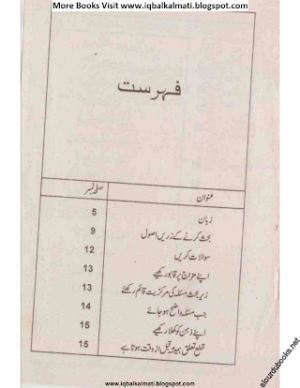 More Books Visit www.iqbalkalmati.blogspot.com
فہرست
عنوان صفحہ نمبر
زبان 5
بحث کرنے کے زریں اصول 9
سوالات کریں 12
اپنے مزاج پر قابو رکھیے 13
زیر بحث مسئلہ کی مرکزیت قائم رکھئے 13
جب مسئلہ واضح ہو جائے 14
اپنے ذہن کو کھلا رکھیے 15
قطع تعلق ہمیشہ قبل از وقت ہوتا ہے 15
www.iqbalkalmati.blogspot.com
aiourdubooks.net